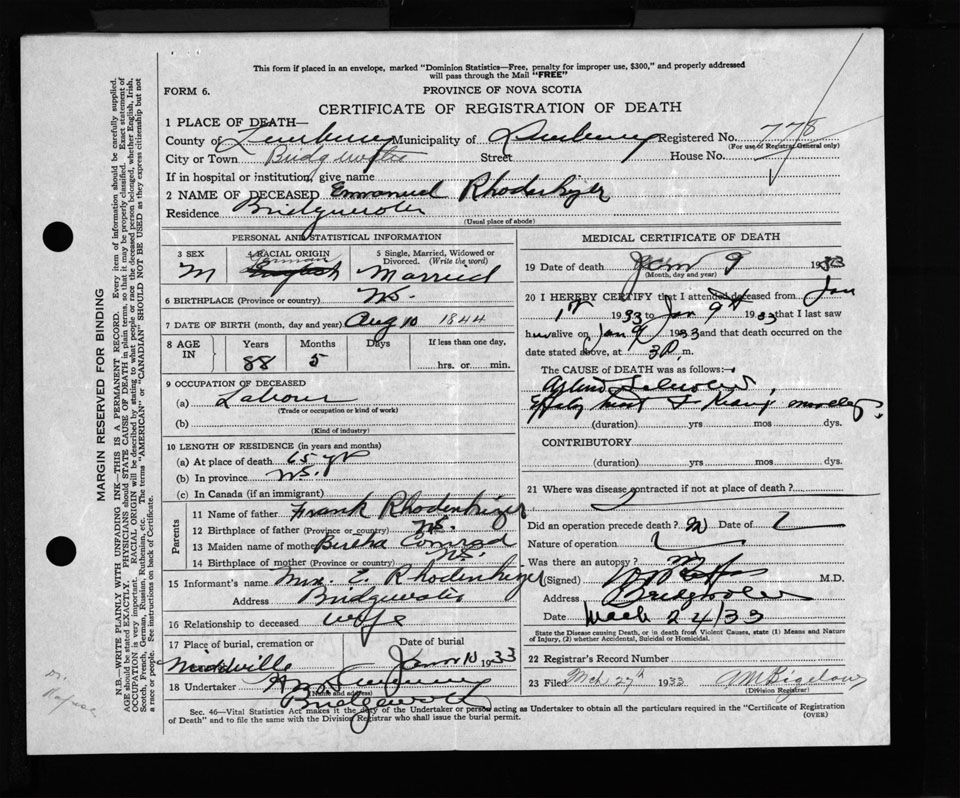 This form if placed in an envelope, marked "Dominion Statistics—Free, penalty for improper use, $300," and properly addressed
will pass through the Mail "FREE"
FORM 6.
PROVINCE OF NOVA SCOTIA
CERTIFICATE OF REGISTRATION OF DEATH
1 PLACE OF DEATH—
County of Lunenburg Municipality of Lunenburg Registered No. 778
(For use of Registrar General only)
City or Town Bridgewater Street House No.
If in hospital or institution, give name
2 NAME OF DECEASED Emmanuel Rhodenhizer
Residence Bridgewater
(Usual place of abode)
PERSONAL AND STATISTICAL INFORMATION
3 SEX
M
4 RACIAL ORIGIN
German
English
5 Single, Married, Widowed or Divorced. (Write the word)
Married
6 BIRTHPLACE (Province or country) N.S.
7 DATE OF BIRTH (month, day and year) Aug 10 1844
8 AGE IN
Years
88
Months
5
Days
If less than one day,
hrs. or min.
9 OCCUPATION OF DECEASED
(a) Labour
(Trade or occupation or kind of work)
(b)
(Kind of industry)
10 LENGTH OF RESIDENCE (in years and months)
(a) At place of death 65 yr
(b) In province N.S.
(c) In Canada (if an immigrant)
Parents
11 Name of father Frank Rhodenhizer
12 Birthplace of father (Province or country) N.S.
13 Maiden name of mother Bertha Conrad
14 Birthplace of mother (Province or country) N.S.
15 Informant's name Mrs. E. Rhodenhizer
Address Bridgewater
16 Relationship to deceased wife
17 Place of burial, cremation or
Date of burial
Jan 10 1933
18 Undertaker
(Name and address)
Bridgewater
MEDICAL CERTIFICATE OF DEATH
19 Date of death Jan 9 1933
(Month, day and year)
20 I HEREBY CERTIFY that I attended deceased from Jan
1st 1933 to Jan 9th 1933 that I last saw
him alive on Jan 9 1933 and that death occurred on the
date stated above, at 3 P. m.
The CAUSE OF DEATH was as follows:
(duration) yrs mos dys.
CONTRIBUTORY
(duration) yrs mos dys.
21 Where was disease contracted if not at place of death?
Did an operation precede death? Date of
Nature of operation
Was there an autopsy?
(Signed) M.D.
Address Bridgewater
Date March 24/33
State the Disease causing Death, or in death from Violent Causes, state (1) Means and Nature
of Injury, (2) whether Accidental, Suicidal or Homicidal.
22 Registrar's Record Number
23 Filed Mch 27th 1933 A M Bigelow
(Division Registrar)
Sec. 46—Vital Statistics Act makes it the duty of the Undertaker or person acting as Undertaker to obtain all the particulars required in the "Certificate of Registration
of Death" and to file the same with the Division Registrar who shall issue the burial permit.
(OVER)
MARGIN RESERVED FOR BINDING
N.B.—WRITE PLAINLY WITH UNFADING INK—THIS IS A PERMANENT RECORD. Every item of information should be carefully supplied.
AGE should be stated EXACTLY. PHYSICIANS should STATE CAUSE OF DEATH in plain terms, so that it may be properly classified. Exact statement of
OCCUPATION is very important. RACIAL ORIGIN will be described by stating to what people or race the deceased person belonged, whether English, Irish,
Scotch, French, German, Russian, Ruthenian, etc. The terms "AMERICAN" or "CANADIAN" SHOULD NOT BE USED as they express citizenship but not
a race or people. See instructions on back of Certificate.